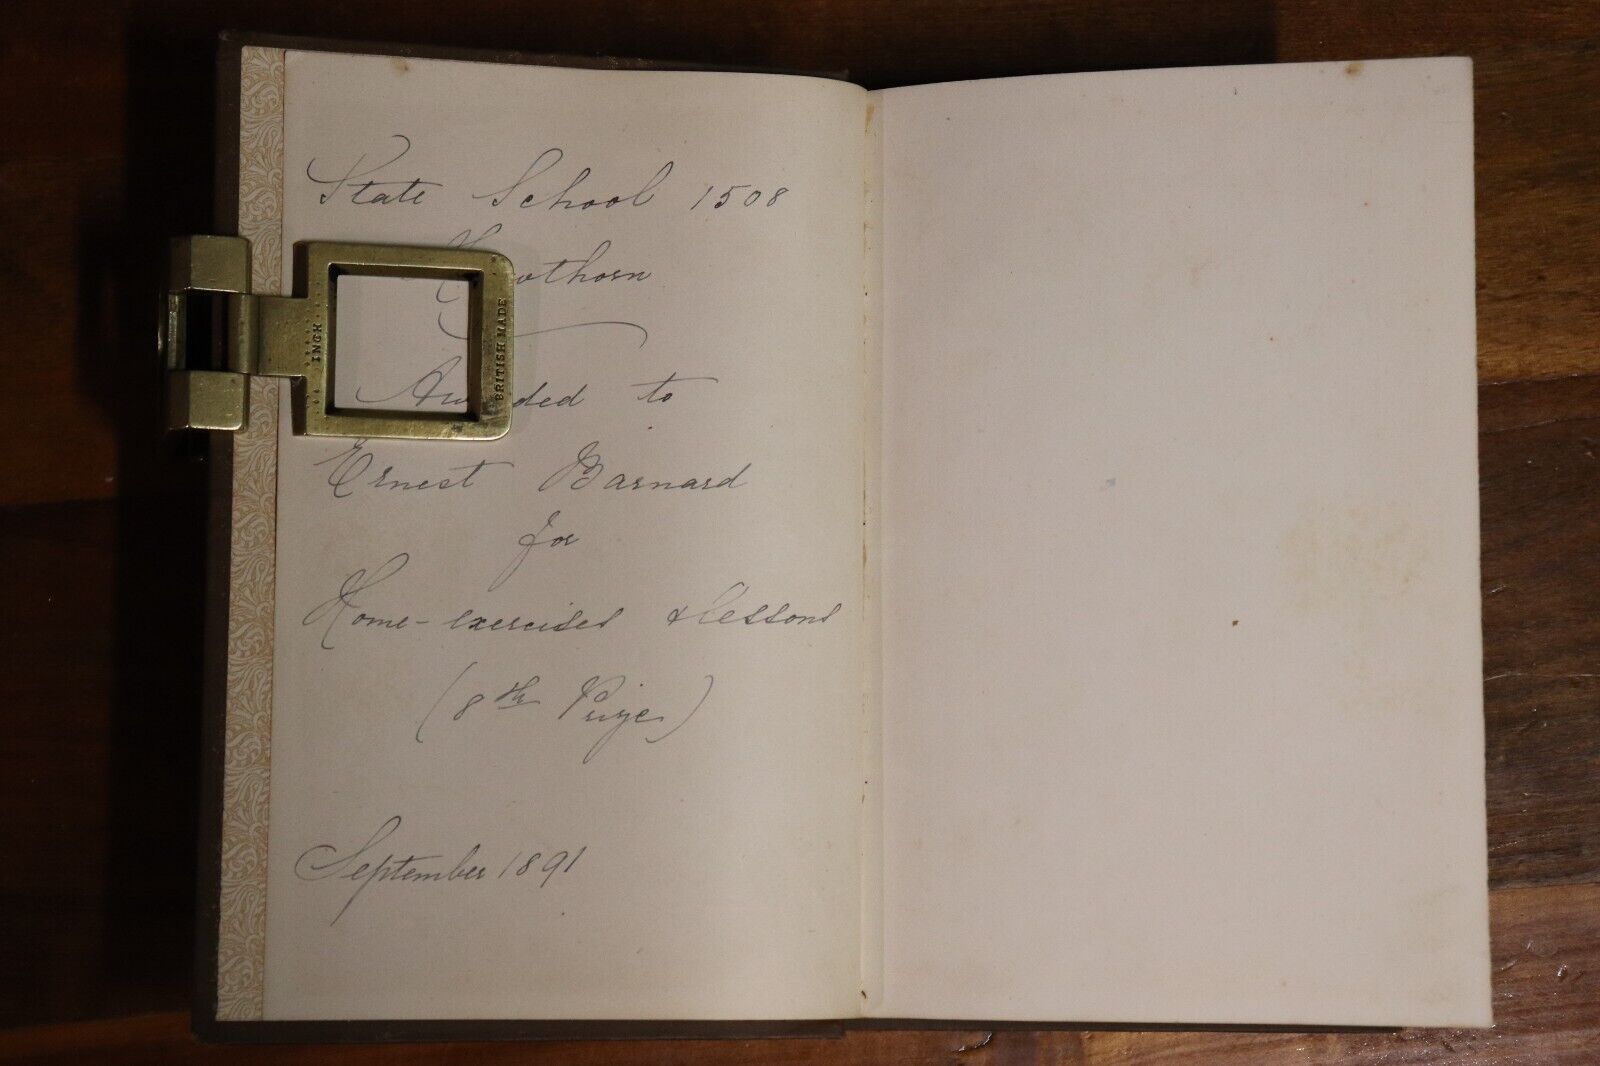 State School 1508
Hawthorn
Awarded to
Ernest Barnard
for
Home-exercises & lessons
(8th Prize)
September 1891
INCH
BRITISH MADE